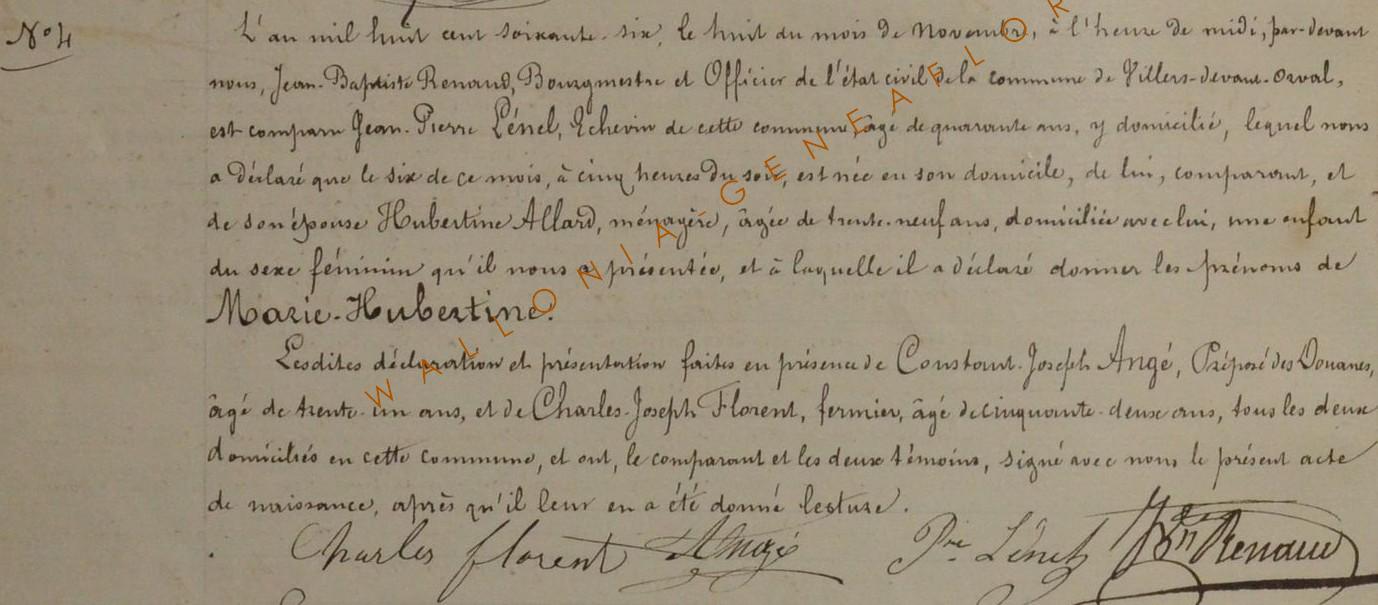 N° 4
L'an mil huit cent soixante-six, le huit du mois de Novembre, à l'heure de midi, par-devant
nous, Jean-Baptiste Renaud, Bourgmestre et Officier de l'état civil de la commune de Villers-devant-Orval,
est comparu Jean-Pierre Lénel, Echevin de cette commune, âgé de quarante ans, y domicilié, lequel nous
a déclaré que le six de ce mois, à cinq heures du soir, est née en son domicile, de lui, comparant, et
de son épouse Hubertine Allard, ménagère, âgée de trente-neuf ans, domiciliée avec lui, une enfant
du sexe féminin qu'il nous a présentée, et à laquelle il a déclaré donner les prénoms de
Marie-Hubertine.
Lesdites déclaration et présentation faites en présence de Constant-Joseph Angé, Préposé des Douanes,
âgé de trente-un ans, et de Charles-Joseph Florent, fermier, âgé de cinquante-deux ans, tous les deux
domiciliés en cette commune, et ont, le comparant et les deux témoins, signé avec nous le présent acte
de naissance, après qu'il leur en a été donné lecture.
Charles florent Angé Pre Lénel JBte Renaud
WALLONIA GENEAFLOR